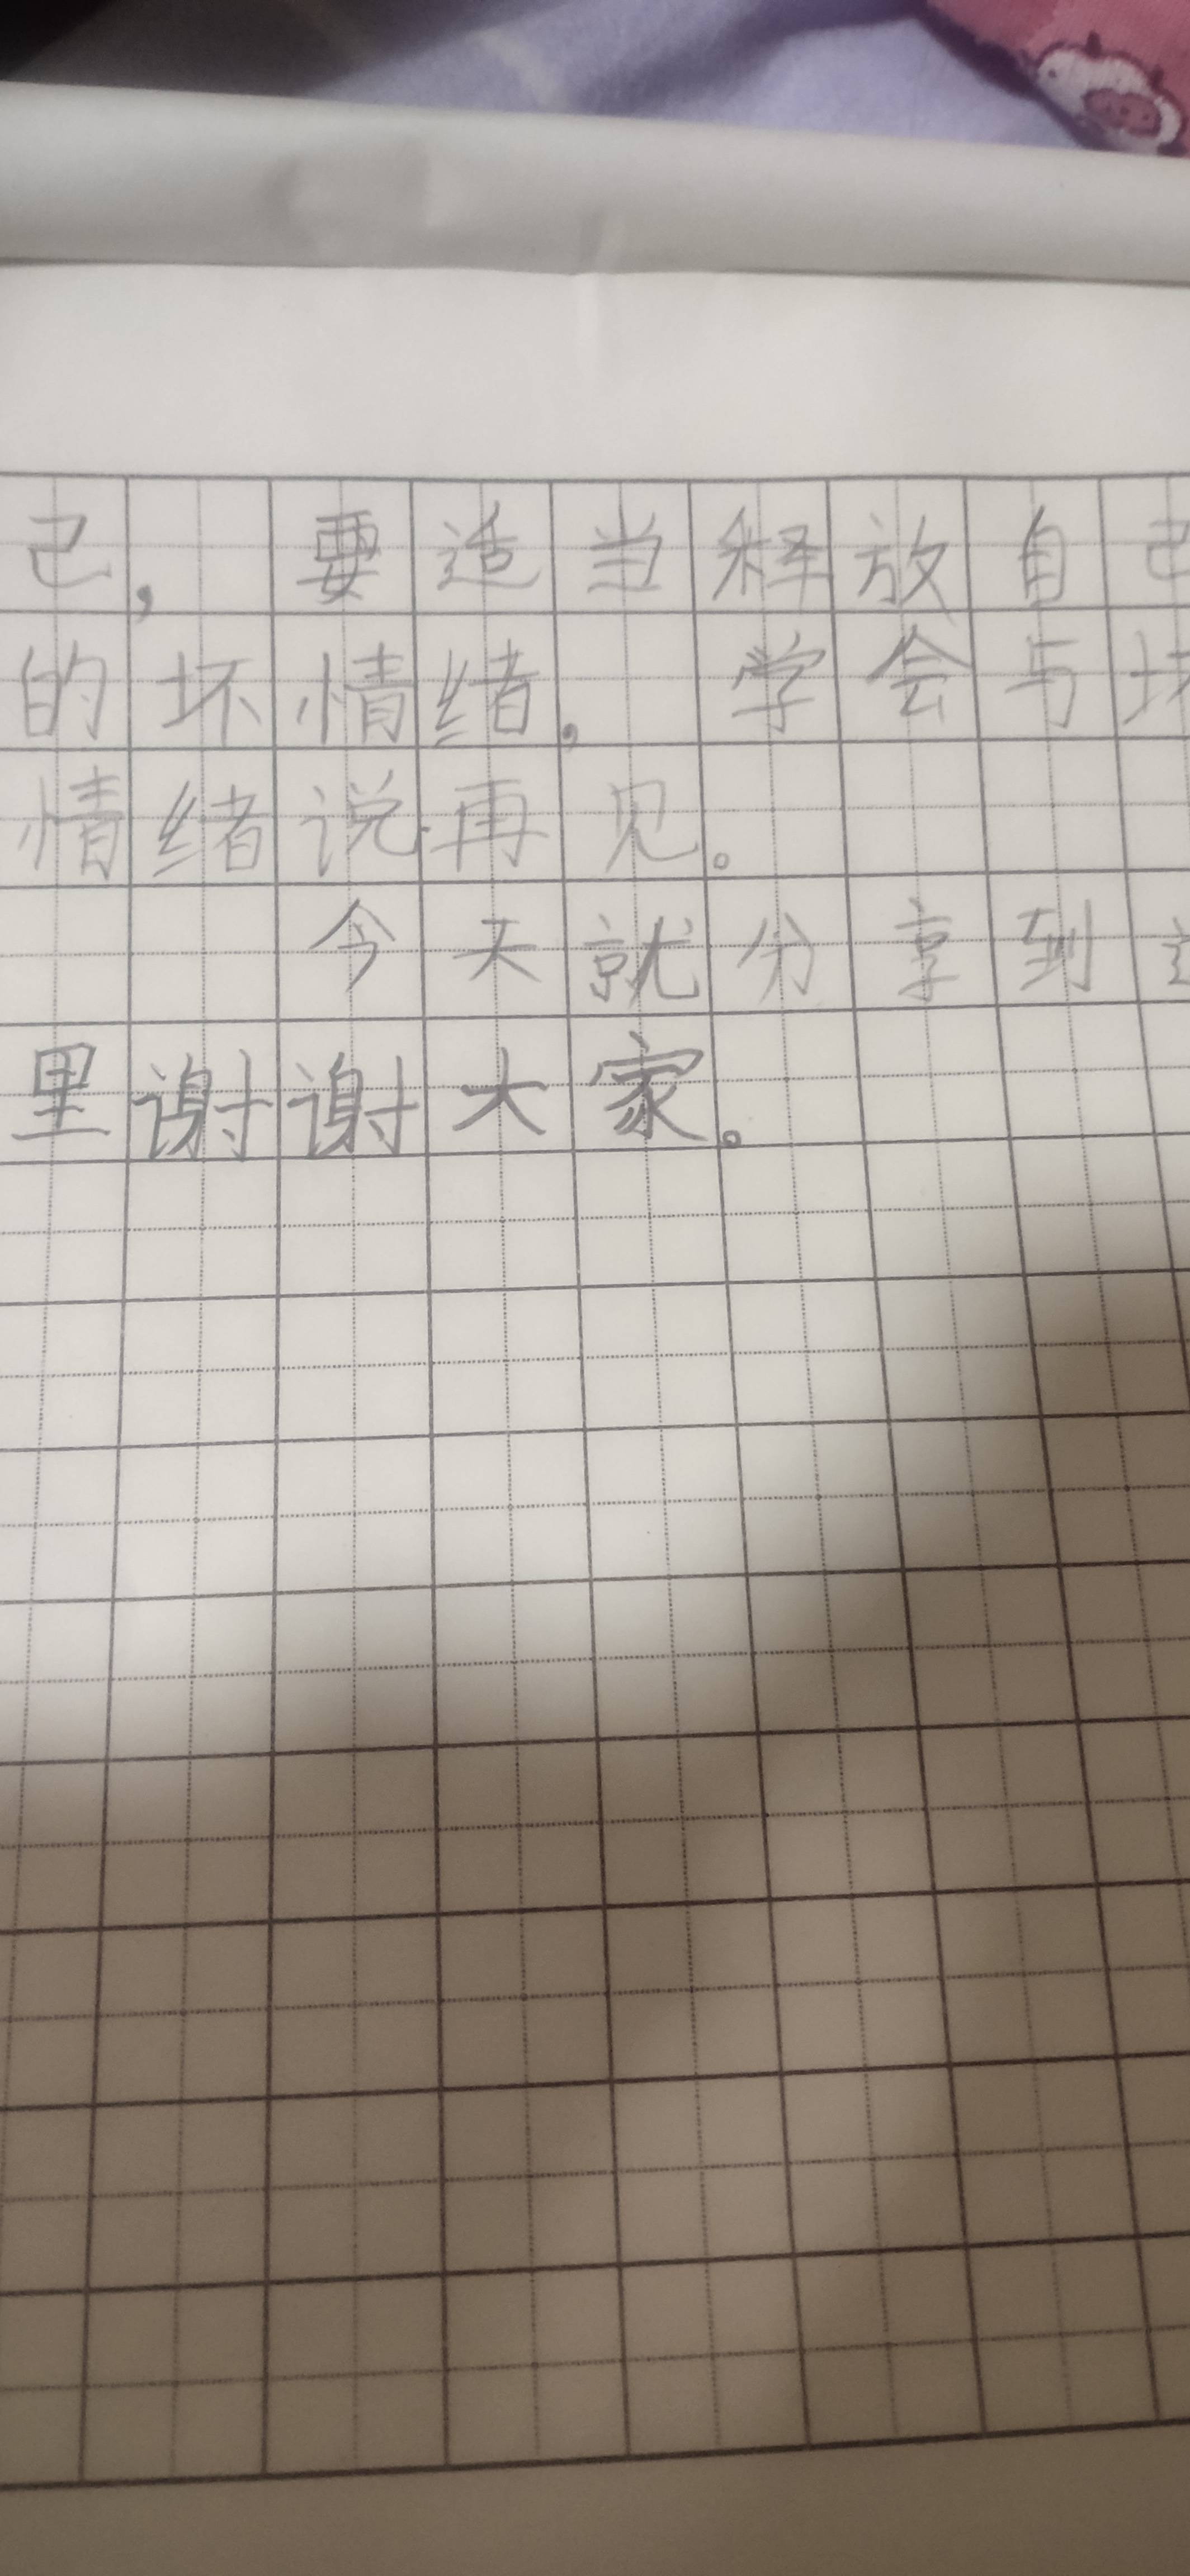 己，要适当释放自己
的坏情绪，学会与
情绪说再见。
今天就分享到
里谢谢大家。